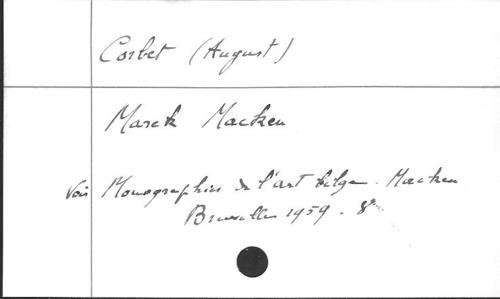 Corbet (August)
Marck Macken
Voir Monographies de l'art belge. Macken
Bruxelles 1959. 8°